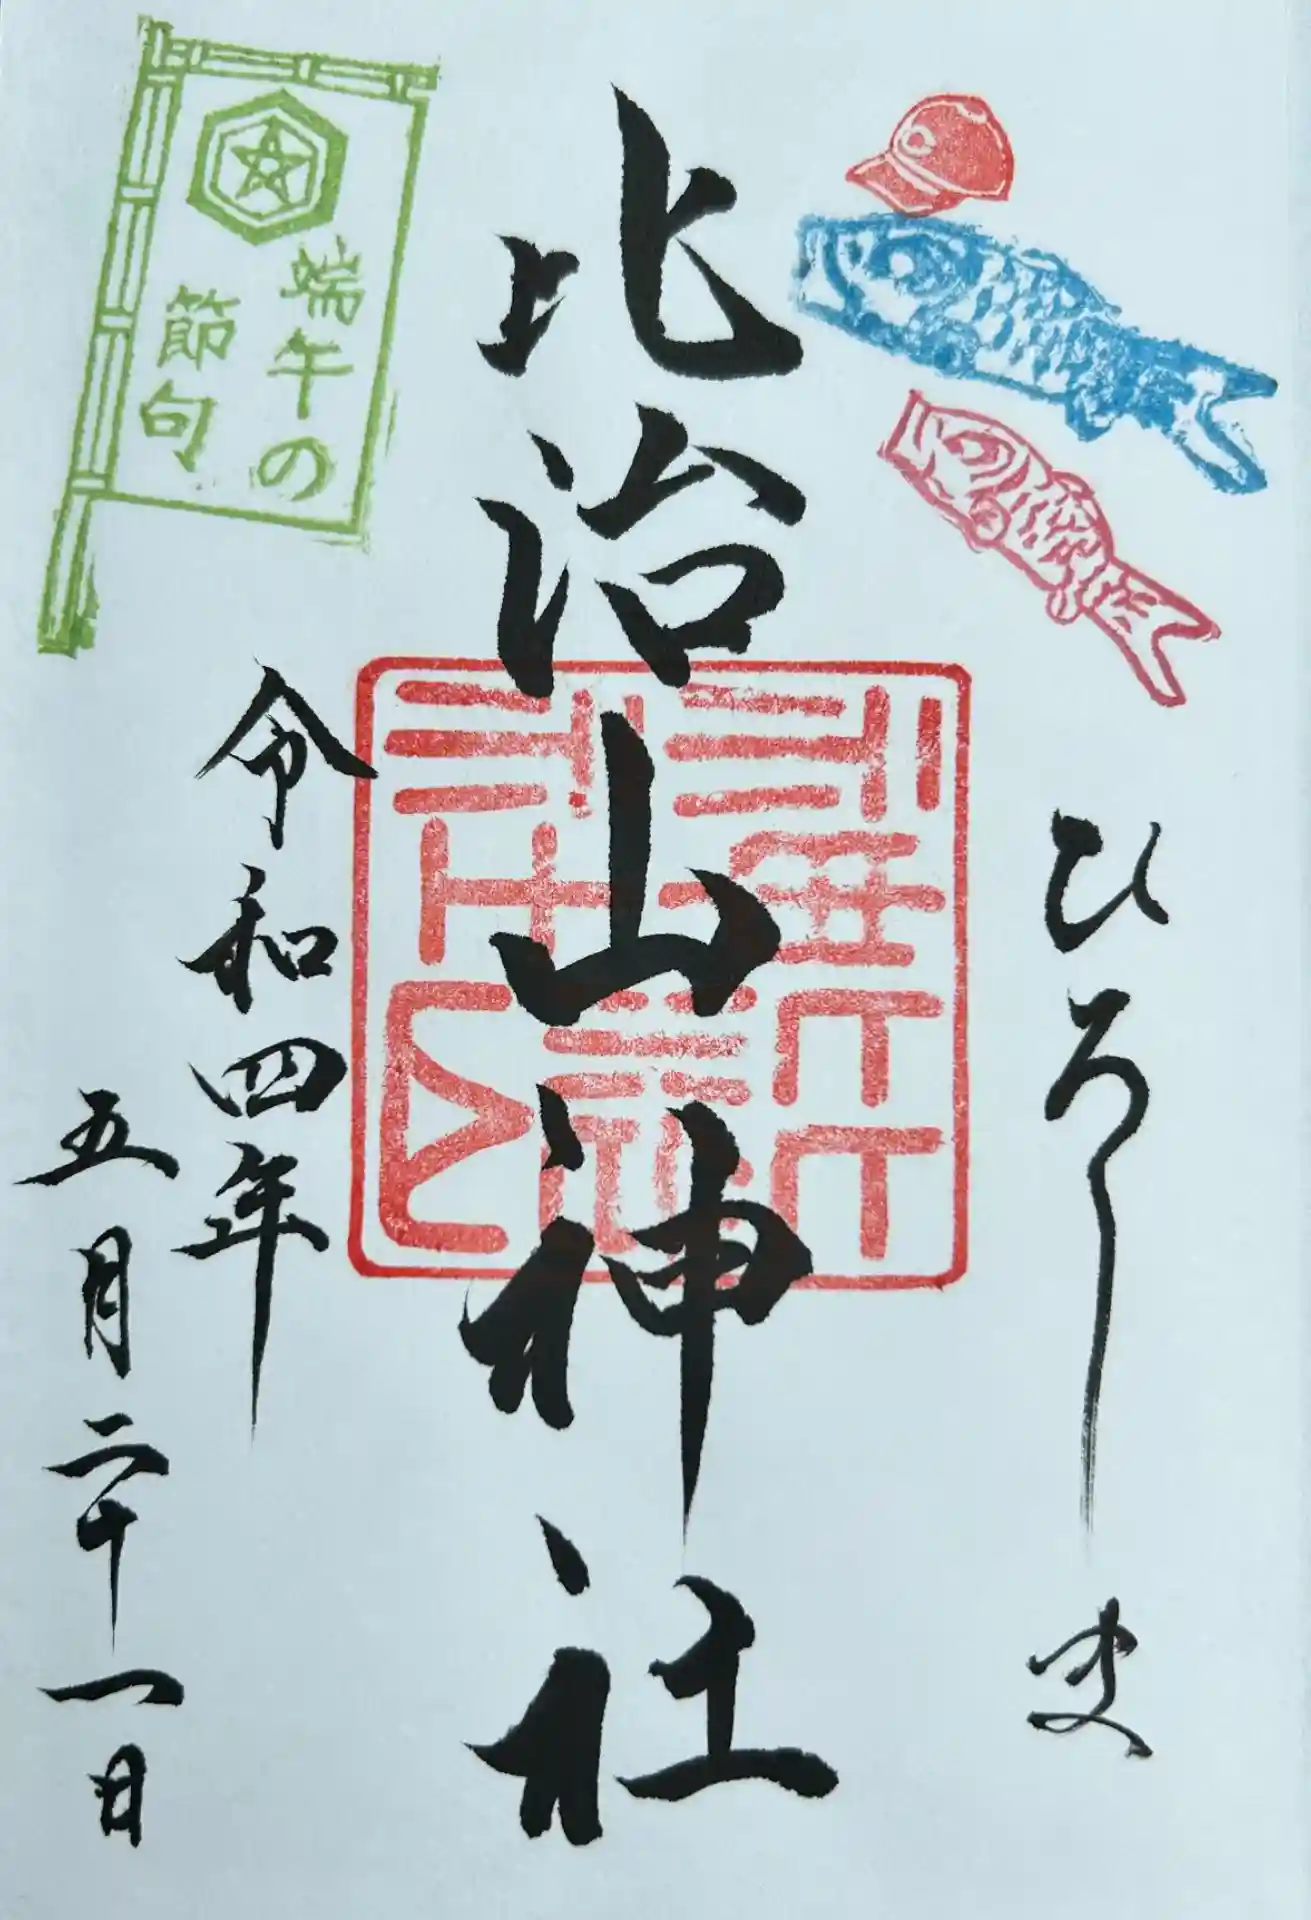 ひろしま
比治山神社
令和四年
五月二十一日
端午の
節句